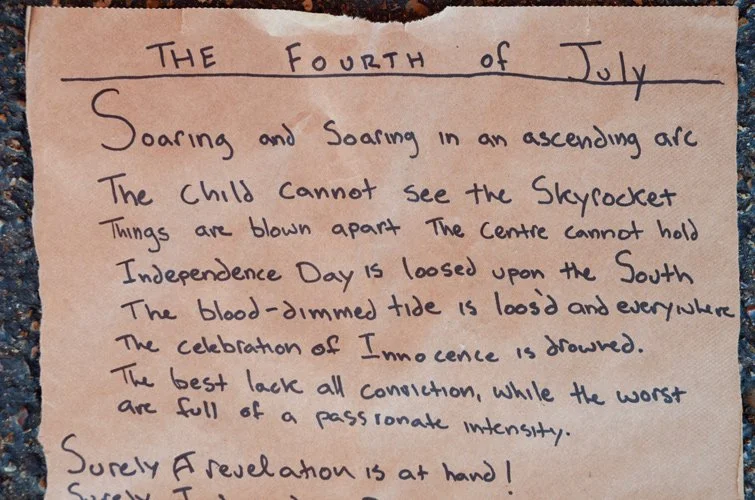 THE FOURTH of July
Soaring and Soaring in an ascending arc
The child cannot see the Skyrocket
Things are blown apart The Centre cannot hold
Independence Day is loosed upon the South
The blood-dimmed tide is loos'd and everywhere
The celebration of Innocence is drowned.
The best lack all conviction, while the worst
are full of a passionate intensity.
Surely A revelation is at hand!
Surely